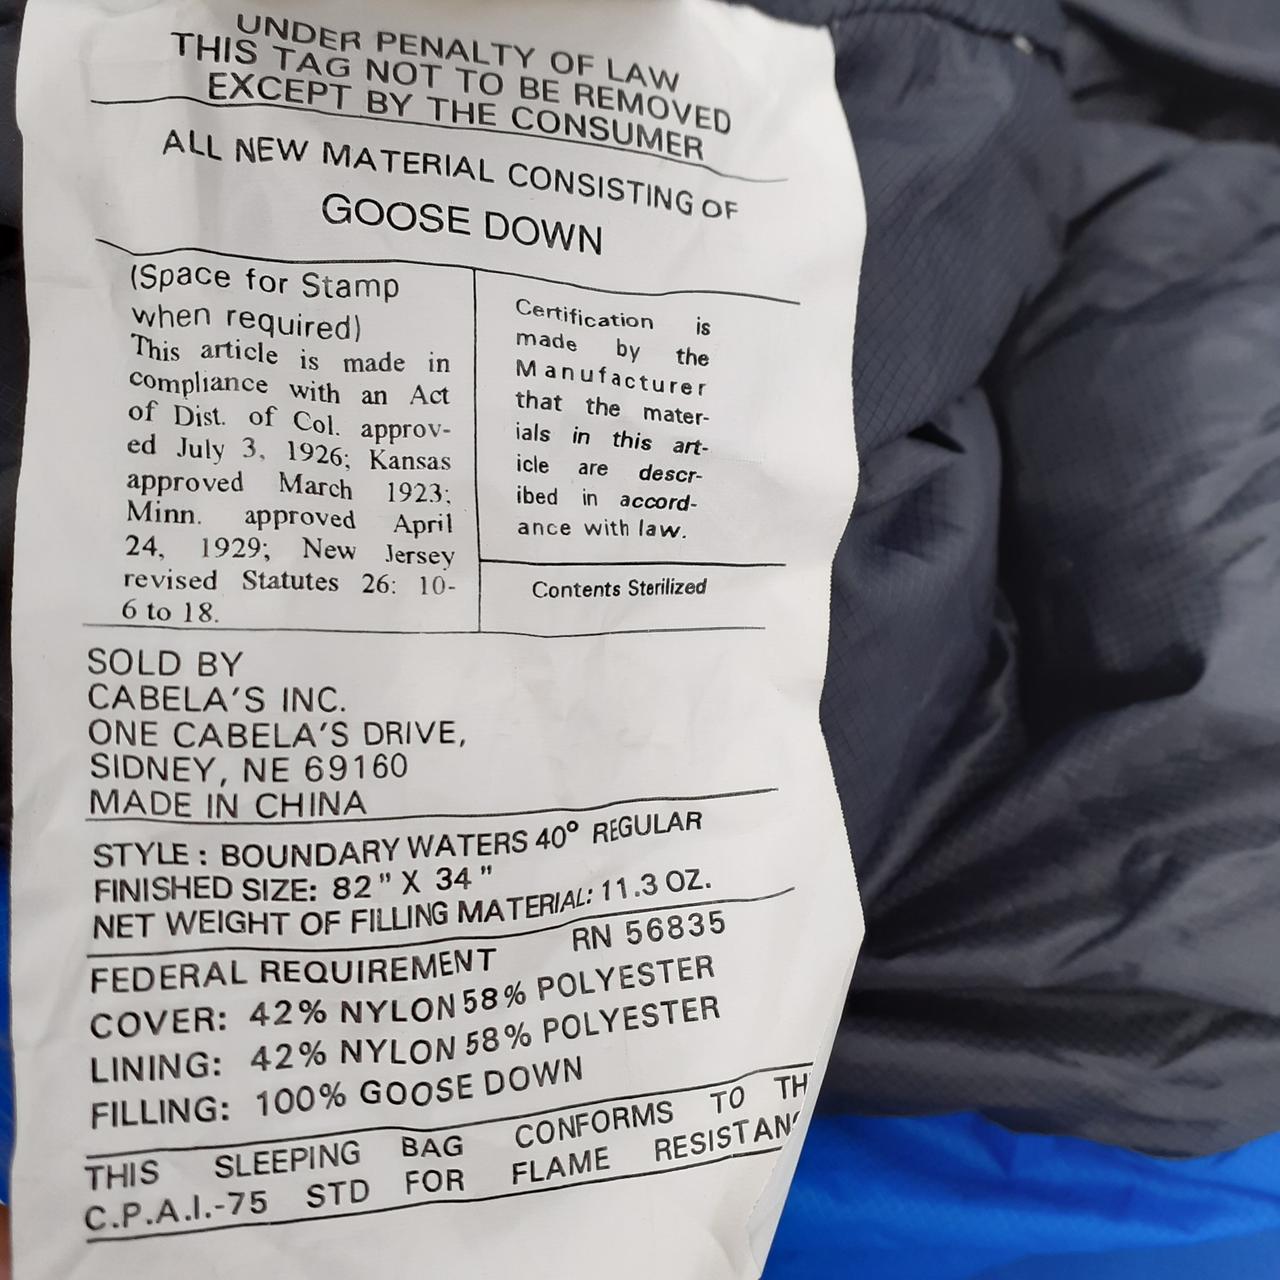 UNDER PENALTY OF LAW
THIS TAG NOT TO BE REMOVED
EXCEPT BY THE CONSUMER
ALL NEW MATERIAL CONSISTING OF
GOOSE DOWN
(Space for Stamp
when required)
This article is made in
compliance with an Act
of Dist. of Col. approv-
ed July 3, 1926; Kansas
approved March 1923;
Minn. approved April
24, 1929; New Jersey
revised Statutes 26: 10-
6 to 18.
Certification is
made by the
Manufacturer
that the mater-
ials in this art-
icle are descr-
ibed in accord-
ance with law.
Contents Sterilized
SOLD BY
CABELA'S INC.
ONE CABELA'S DRIVE,
SIDNEY, NE 69160
MADE IN CHINA
STYLE : BOUNDARY WATERS 40° REGULAR
FINISHED SIZE: 82" X 34"
NET WEIGHT OF FILLING MATERIAL: 11.3 OZ.
FEDERAL REQUIREMENT RN 56835
COVER: 42% NYLON 58% POLYESTER
LINING: 42% NYLON 58% POLYESTER
FILLING: 100% GOOSE DOWN
THIS SLEEPING BAG CONFORMS TO TH
C.P.A.I.-75 STD FOR FLAME RESISTAN